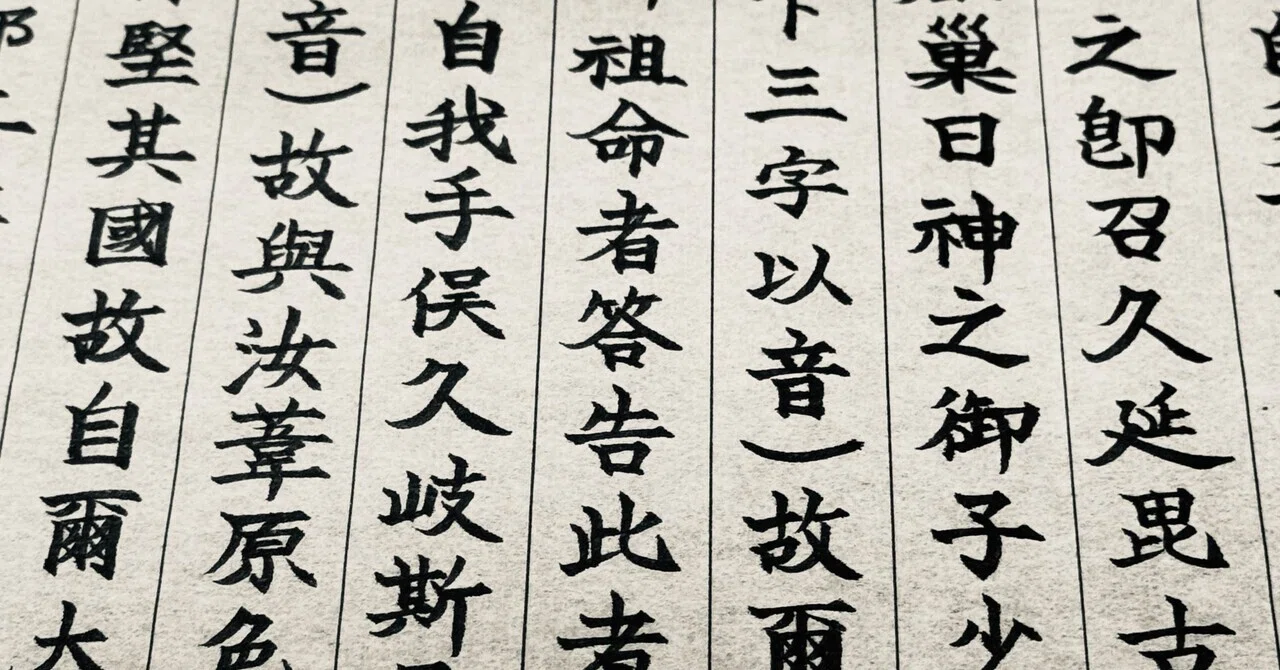 之卽召久延毘古
巢日神之御子少
三字以音）故爾
祖命者答告此者
自我手俣久岐斯
音）故與汝葦原色
堅其國故自爾大